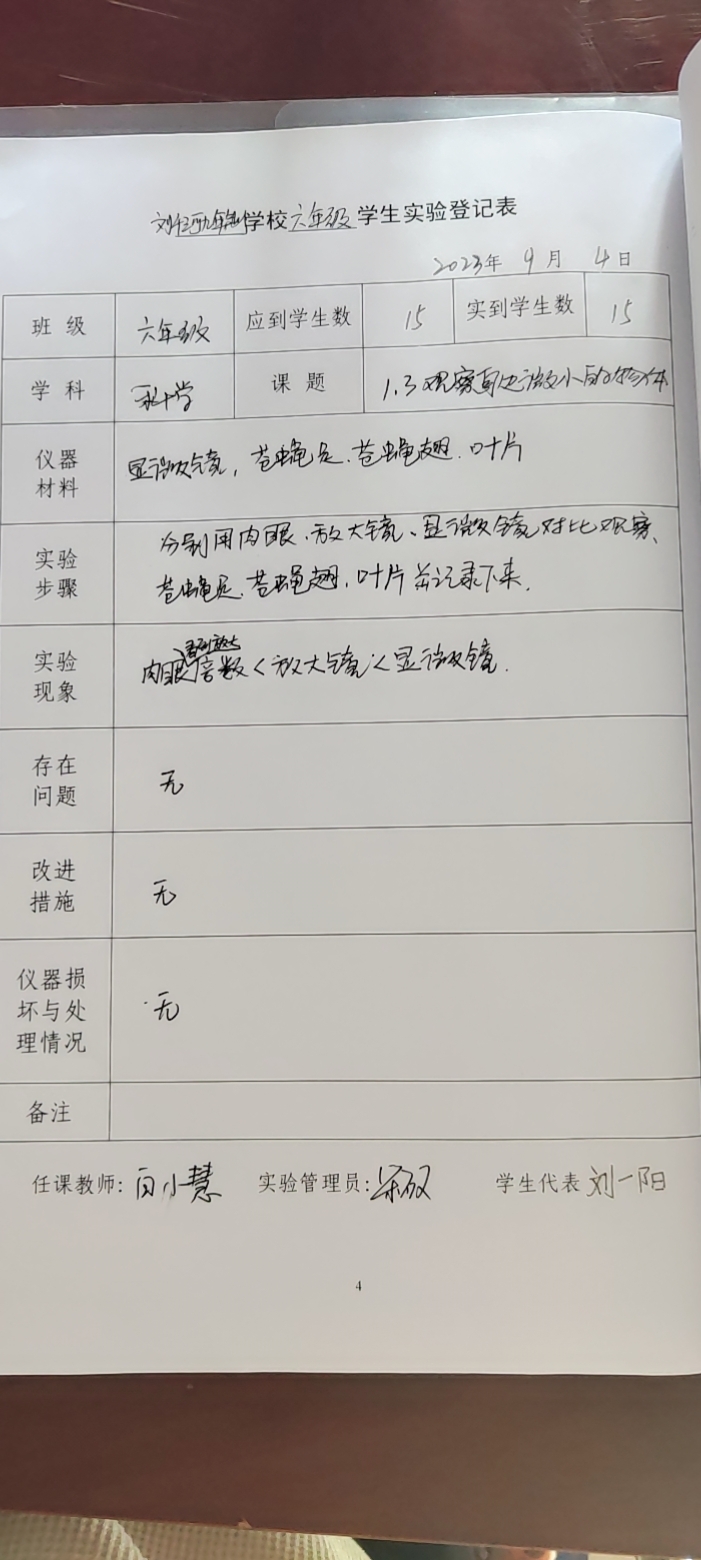 刘千河九年制学校六年级学生实验登记表
2023年 9月 4日
班级 六年级 应到学生数 15 实到学生数 15
学科 科学 课题 1.3观察身边微小的物体
仪器材料 显微镜,苍蝇足、苍蝇翅、叶片
实验步骤 分别用肉眼、放大镜、显微镜对比观察、
苍蝇足、苍蝇翅、叶片并记录下来.
实验现象 肉眼看到放大倍数<放大镜<显微镜.
存在问题 无
改进措施 无
仪器损坏与处理情况 无
备注
任课教师: 白小慧 实验管理员: 学生代表 刘一阳
4